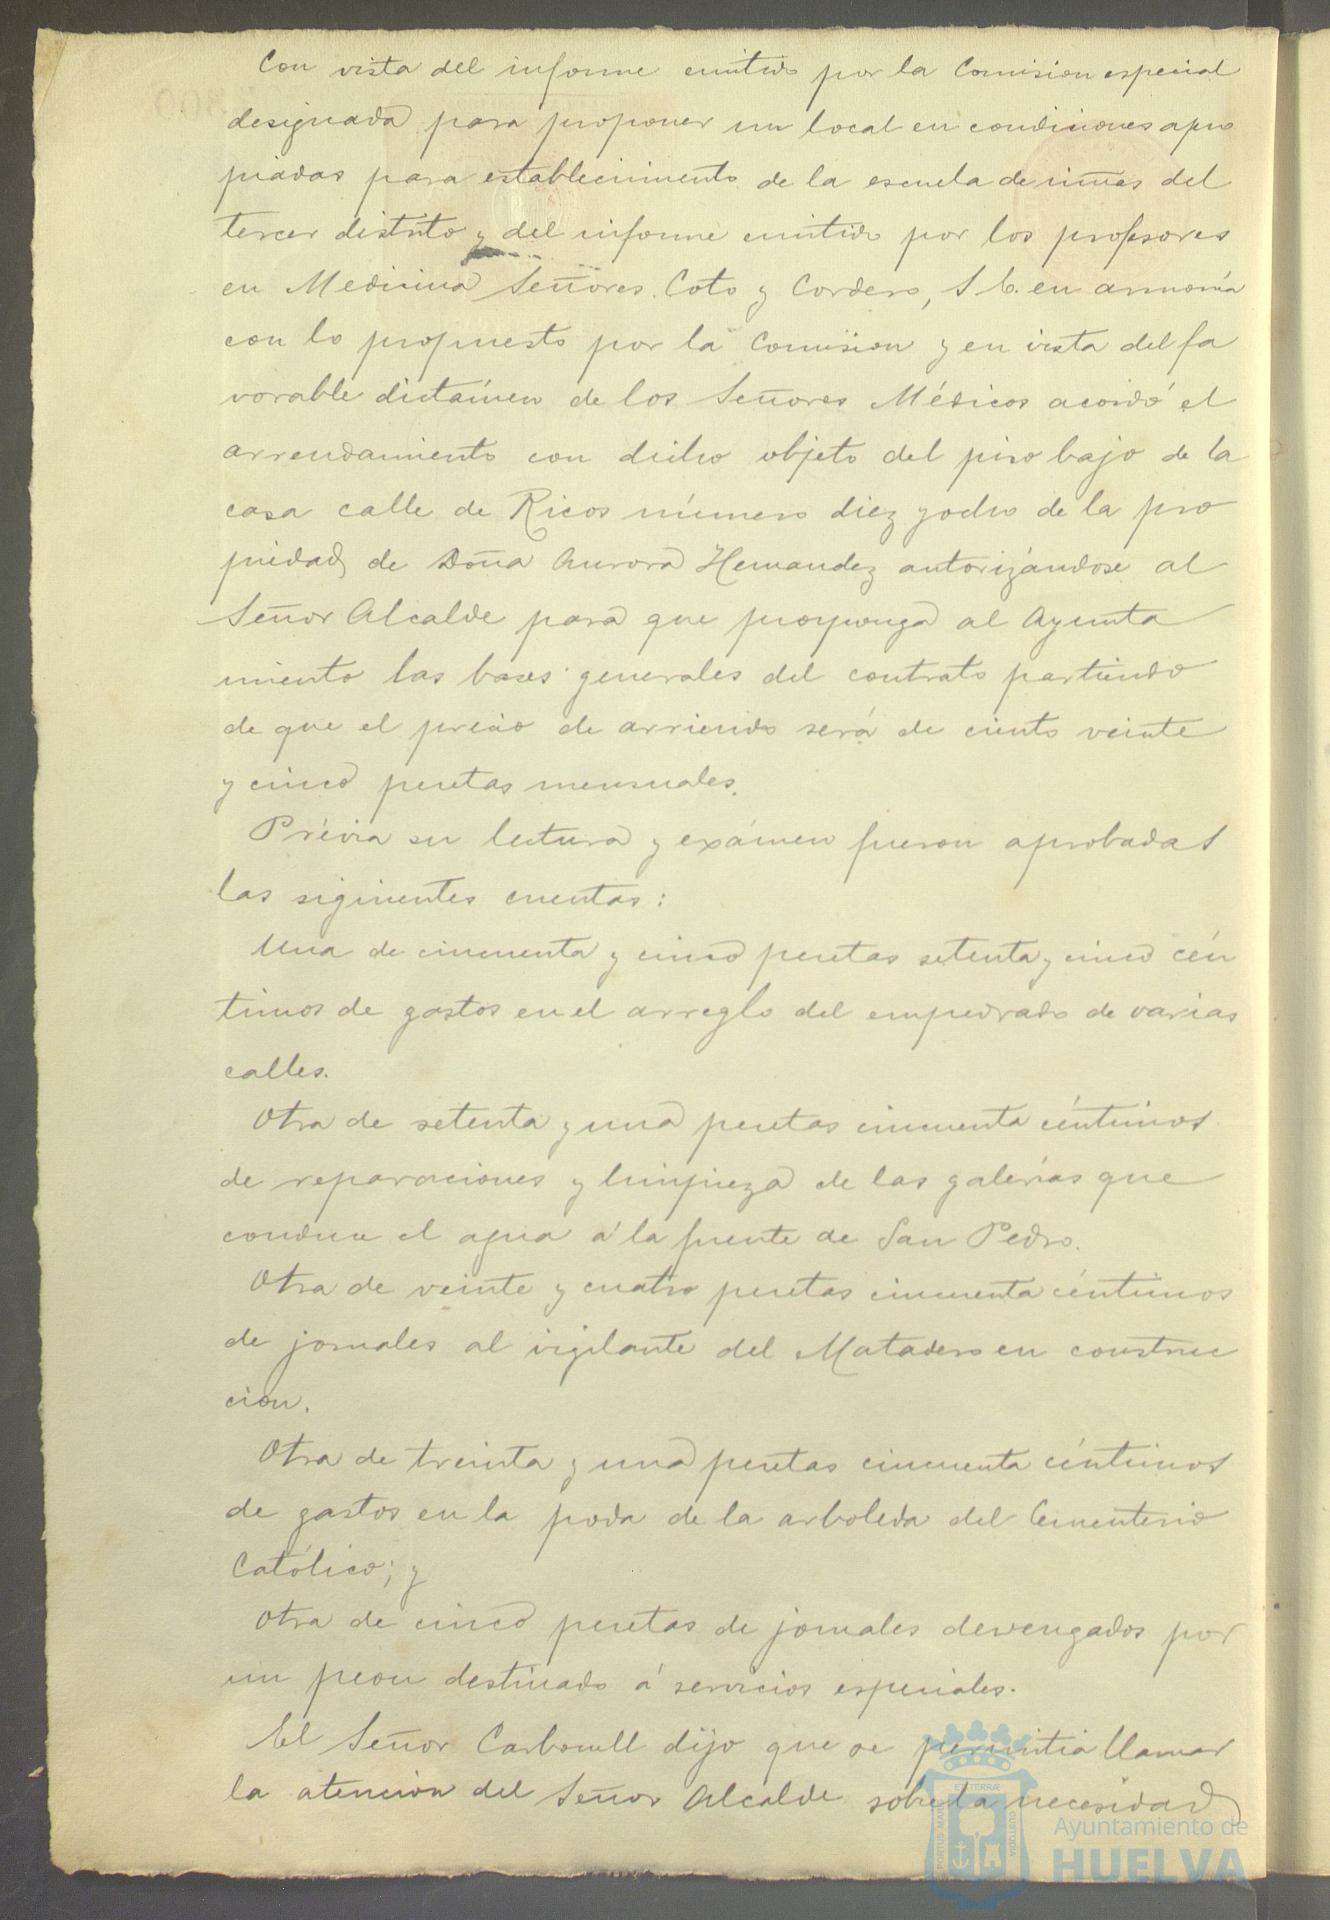 Con vista del informe emitido por la Comision especial
designada para proponer un local en condiciones apro
piadas para establecimiento de la escuela de niñas del
tercer distrito y del informe emitido por los profesores
en Medicina Señores Coto y Cordero, S. E. en armonía
con lo propuesto por la Comision y en vista del fa
vorable dictámen de los Señores Médicos acordó el
arrendamiento con dicho objeto del piso bajo de la
casa calle de Ricos número diez y ocho de la pro
piedad de Doña Aurora Hernandez autorizándose al
Señor Alcalde para que proponga al Ayunta
miento las bases generales del contrato partiendo
de que el precio de arriendo será de ciento veinte
y cinco pesetas mensuales.
Prévia su lectura y exámen fueron aprobadas
las siguientes cuentas:
Una de cincuenta y cinco pesetas setenta y cinco cén
timos de gastos en el arreglo del empedrado de varias
calles.
Otra de setenta y una pesetas cincuenta céntimos
de reparaciones y limpieza de las galerías que
conduce el agua á la fuente de San Pedro.
Otra de veinte y cuatro pesetas cincuenta céntimos
de jornales al vigilante del Matadero en construc
cion.
Otra de treinta y una pesetas cincuenta céntimos
de gastos en la poda de la arboleda del Cementerio
Católico; y
Otra de cinco pesetas de jornales devengados por
un peon destinado á servicios especiales.
El Señor Carbonell dijo que se permitia llamar
la atencion del Señor Alcalde sobre la necesidad
PORTUS MARIS
ET TERRÆ
CUSTODIA
Ayuntamiento de
HUELVA